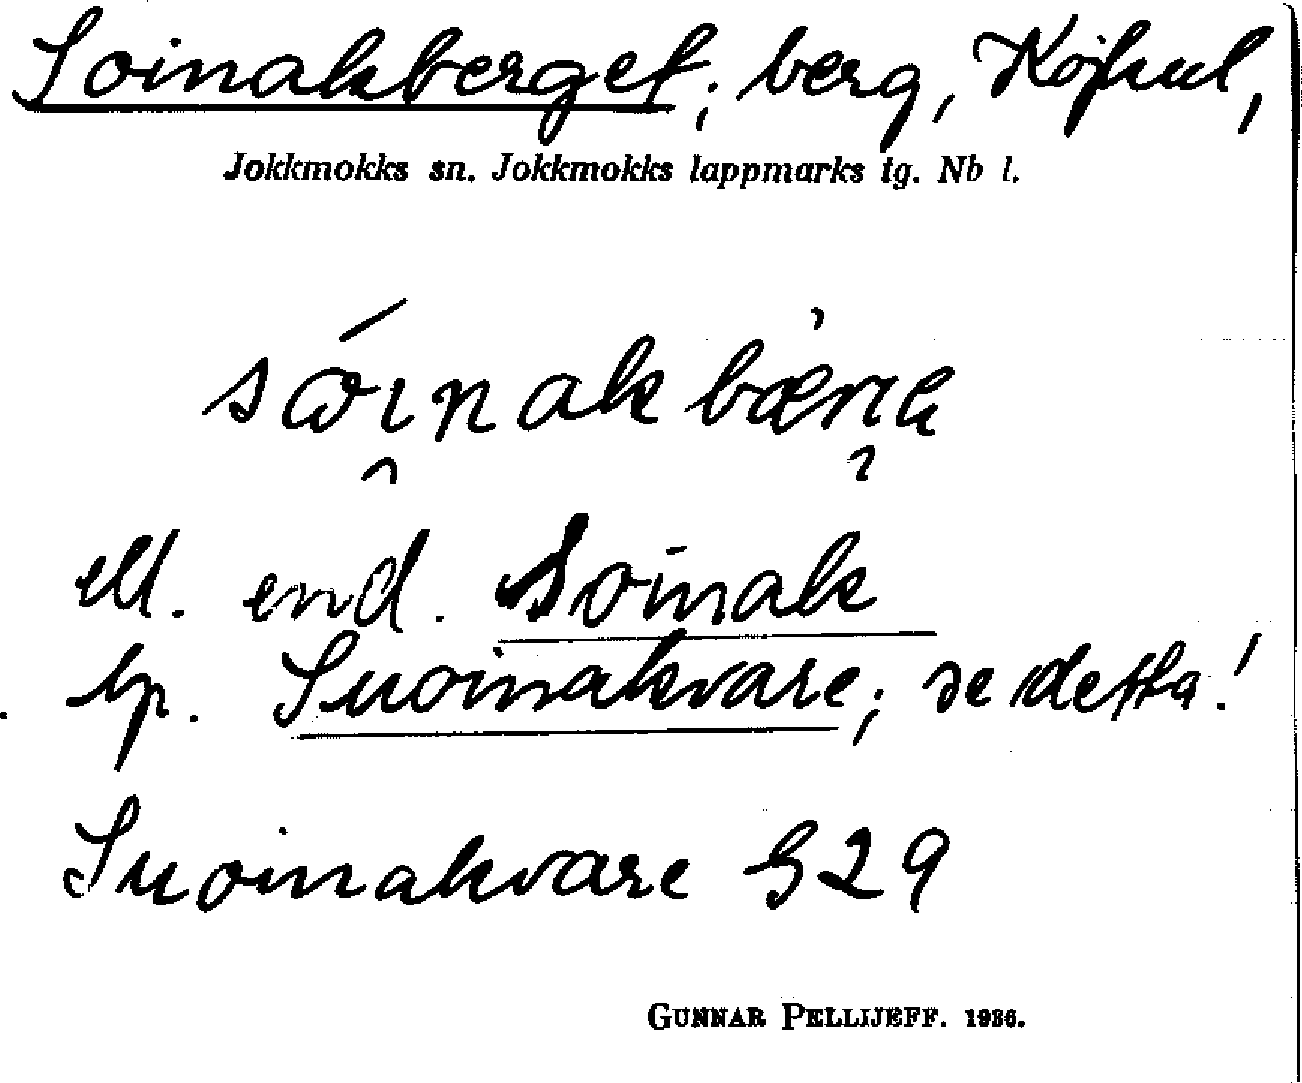 Soinakberget; berg, Kåjkul,
Jokkmokks sn. Jokkmokks lappmarks tg. Nb l.
ell. end. Soinak
lp. Suoinakvare; se detta!
Suoinakvare G29
GUNNAR PELLIJEFF. 1936.